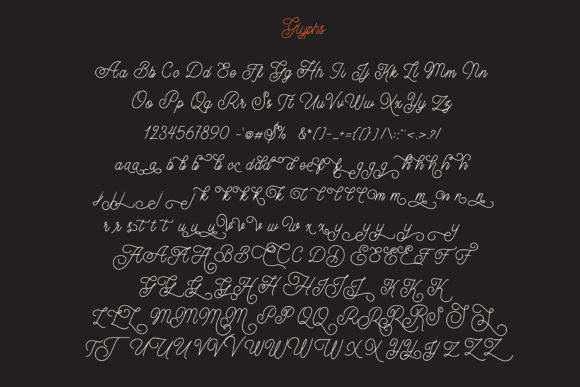 Glyphs
Aa Bb Cc Dd Ee Ff Gg Hh Ii Jj Kk Ll Mm Nn
Oo Pp Qq Rr Ss Tt Uu Vv Ww Xx Yy Zz
1234567890 ~`@#$% &*()-_+={[}]|/\:;"'<,>.?!
aaa b b b b oc ddd d oe f f g g g h h h h
j j j j k k k k k t l l l l l m m n n n
r r s t t t u u u v v v w w x x y y y y y
A A A A B B C C D D E E E F F F
G G G G H H I I J J K K K
L L L M M M M P P Q Q R R R R S S L
T T U U U V V W W W X X Y Y Z Z Z